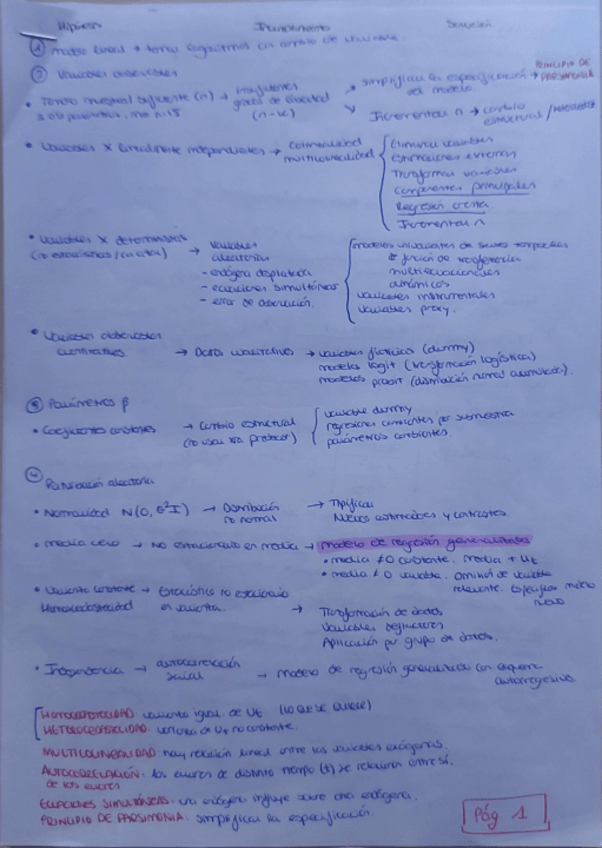 Hipótesis Incumplimiento Solución
① modelo lineal → tomar logaritmos con cambio de variable.
② Variables observables
• Tamaño muestral suficiente (n) → insuficientes grados de libertad (n-k) → simplificar la especificación del modelo → PRINCIPIO DE PARSIMONIA
Incrementar n → cambio estructural /
• Variables X linealmente independientes → colinealidad multicolinealidad
Eliminar variables
Estimaciones externas
Transformar variables
Componentes principales
Regresión cresta
Incrementar n
• Variables X deterministas (no estocásticas) → Variables aleatorias
- endógena desplazada
- ecuaciones simultáneas
- error de observación.
modelos univariantes de series temporales
de función de transferencia
multiecuacionales
dinámicos
variables instrumentales
variables proxy.
• Variables observables cuantitativas → Datos cualitativos → variables ficticias (dummy)
modelos logit (transformación logística)
modelos probit (distribución normal acumulada).
③ Parámetros β
• Coeficientes constantes → Cambio estructural (no usar para predecir)
variable dummy
regresiones cambiantes por submuestra
parámetros cambiantes.
④ Perturbación aleatoria
• Normalidad N(0, σ²I) → Distribución no normal → Tipificar
Nuevos estimadores y contrastes
• media cero → No estacionario en media → modelo de regresión generalizado
• media ≠ 0 constante. media + Ut
• media ≠ 0 variable. Omisión de variable relevante. Especificar modelo nuevo
• Varianza constante Homocedasticidad → Estocástico no estacionario en varianza. → Transformación de datos
Variables deflactores
Aplicación por grupo de datos.
• Independencia → autocorrelación serial → modelo de regresión generalizado con esquema autorregresivo
HOMOCEDASTICIDAD: varianza igual de Ut (LO QUE SE QUIERE)
HETEROCEDASTICIDAD: varianza de Ut no constante.
MULTICOLINEALIDAD: hay relación lineal entre las variables exógenas.
AUTOCORRELACIÓN: los errores de distinto tiempo (t) se relacionan entre sí.
de los errores
ECUACIONES SIMULTÁNEAS: una endógena influye sobre otra endógena.
PRINCIPIO DE PARSIMONIA: simplificar la especificación.
Pág 1